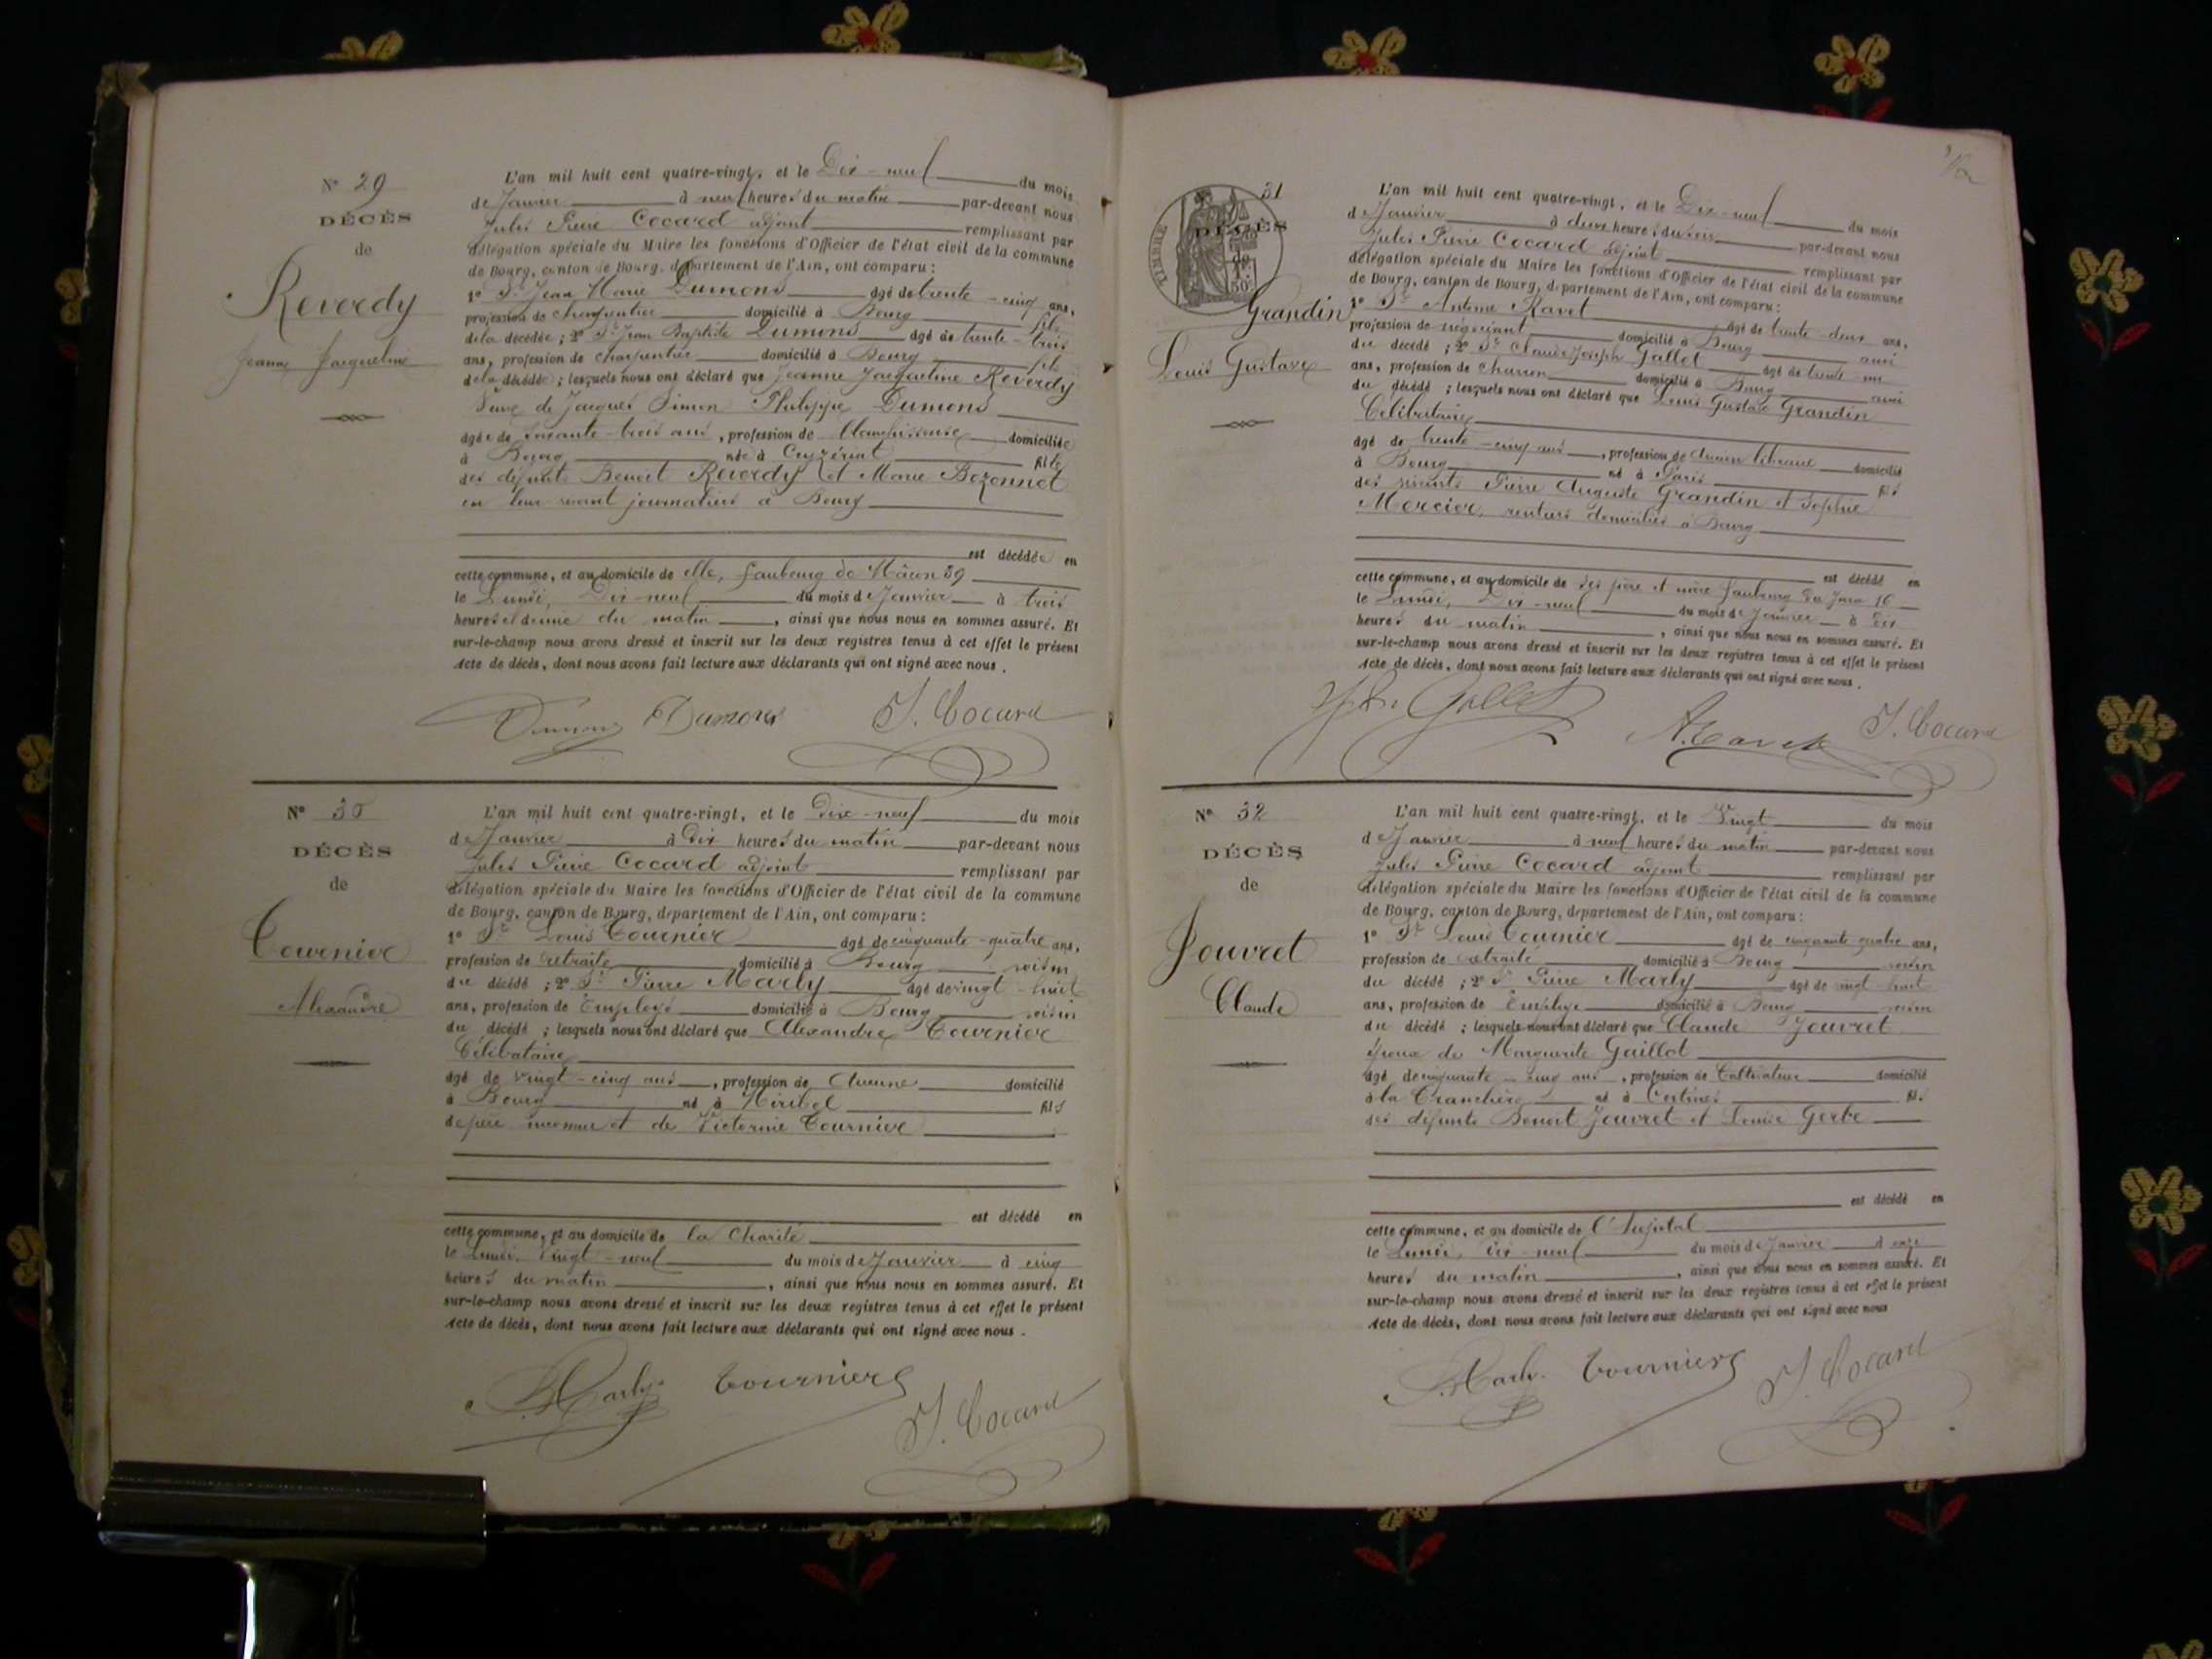 N° 29
DÉCÈS
de
Reverdy
Jeanne Jacqueline
L'an mil huit cent quatre-vingt, et le Dix-neuf du mois
de Janvier à neuf heures du matin par-devant nous
Jules Pierre Cocard adjoint remplissant par
délégation spéciale du Maire les fonctions d'Officier de l'état civil de la commune
de Bourg, canton de Bourg, département de l'Ain, ont comparu :
1° Sr Jean Marie Dumons âgé de trente-cinq ans,
profession de charpentier domicilié à Bourg fils
de la décédée ; 2° Sr Jean Baptiste Dumons âgé de trente-trois
ans, profession de charpentier domicilié à Bourg fils
de la décédée ; lesquels nous ont déclaré que Jeanne Jacqueline Reverdy
Veuve de Jacques Simon Philippe Dumons
âgée de soixante-trois ans, profession de Blanchisseuse domiciliée
à Bourg née à Ceyzériat fille
des défunts Benoit Reverdy et Marie Bozonnet
en leur vivant journaliers à Bourg
est décédée en
cette commune, et au domicile de elle, faubourg de Mâcon 39
le Lundi, Dix-neuf du mois de Janvier à trois
heures et demie du matin, ainsi que nous nous en sommes assuré. Et
sur-le-champ nous avons dressé et inscrit sur les deux registres tenus à cet effet le présent
acte de décès, dont nous avons fait lecture aux déclarants qui ont signé avec nous.
Dumons Dumons J. Cocard
N° 30
DÉCÈS
de
Tournier
Alexandre
L'an mil huit cent quatre-vingt, et le Dix-neuf du mois
de Janvier à Dix heures du matin par-devant nous
Jules Pierre Cocard adjoint remplissant par
délégation spéciale du Maire les fonctions d'Officier de l'état civil de la commune
de Bourg, canton de Bourg, département de l'Ain, ont comparu :
1° Sr Louis Tournier âgé de cinquante-quatre ans,
profession de retraité domicilié à Bourg voisin
du décédé ; 2° Sr Pierre Marly âgé de vingt-huit
ans, profession de Employé domicilié à Bourg voisin
du décédé ; lesquels nous ont déclaré que Alexandre Tournier
Célibataire
âgé de vingt-cinq ans, profession de Aucune domicilié
à Bourg né à Miribel fils
de père inconnu et de Victorine Tournier
est décédé en
cette commune, et au domicile de la Charité
le Lundi, Vingt-neuf du mois de Janvier à cinq
heures du matin, ainsi que nous nous en sommes assuré. Et
sur-le-champ nous avons dressé et inscrit sur les deux registres tenus à cet effet le présent
acte de décès, dont nous avons fait lecture aux déclarants qui ont signé avec nous.
Marly Tournier J. Cocard
TIMBRE
31
DÉCÈS
de
Grandin
Louis Gustave
L'an mil huit cent quatre-vingt, et le Dix-neuf du mois
de Janvier à deux heures du soir par-devant nous
Jules Pierre Cocard adjoint remplissant par
délégation spéciale du Maire les fonctions d'Officier de l'état civil de la commune
de Bourg, canton de Bourg, département de l'Ain, ont comparu :
1° Sr Antoine Ravet âgé de trente-deux ans,
profession de négociant domicilié à Bourg ami
du décédé ; 2° Sr Claude Joseph Gallet âgé de trente-un
ans, profession de charron domicilié à Bourg ami
du décédé ; lesquels nous ont déclaré que Louis Gustave Grandin
Célibataire
âgé de trente-cinq ans, profession de Ancien libraire domicilié
à Bourg né à Paris fils
des vivants Pierre Auguste Grandin et Sophie
Mercier, rentiers domiciliés à Bourg
est décédé en
cette commune, et au domicile de ses père et mère faubourg du Jura 16
le Lundi, Dix-neuf du mois de Janvier à dix
heures du matin, ainsi que nous nous en sommes assuré. Et
sur-le-champ nous avons dressé et inscrit sur les deux registres tenus à cet effet le présent
acte de décès, dont nous avons fait lecture aux déclarants qui ont signé avec nous.
Gallet A. Ravet J. Cocard
N° 32
DÉCÈS
de
Jouvret
Claude
L'an mil huit cent quatre-vingt, et le Vingt du mois
de Janvier à neuf heures du matin par-devant nous
Jules Pierre Cocard adjoint remplissant par
délégation spéciale du Maire les fonctions d'Officier de l'état civil de la commune
de Bourg, canton de Bourg, département de l'Ain, ont comparu :
1° Sr Louis Tournier âgé de cinquante quatre ans,
profession de retraité domicilié à Bourg voisin
du décédé ; 2° Sr Pierre Marly âgé de vingt-huit
ans, profession de Employé domicilié à Bourg voisin
du décédé ; lesquels nous ont déclaré que Claude Jouvret
époux de Marguerite Guillot
âgé de cinquante-cinq ans, profession de Cultivateur domicilié
à la Tranchère né à Certines fils
des défunts Benoit Jouvret et Louise Gerbe
est décédé en
cette commune, et au domicile de l'hôpital
le Lundi, dix-neuf du mois de Janvier à onze
heures du matin, ainsi que nous nous en sommes assuré. Et
sur-le-champ nous avons dressé et inscrit sur les deux registres tenus à cet effet le présent
acte de décès, dont nous avons fait lecture aux déclarants qui ont signé avec nous
Marly Tournier J. Cocard